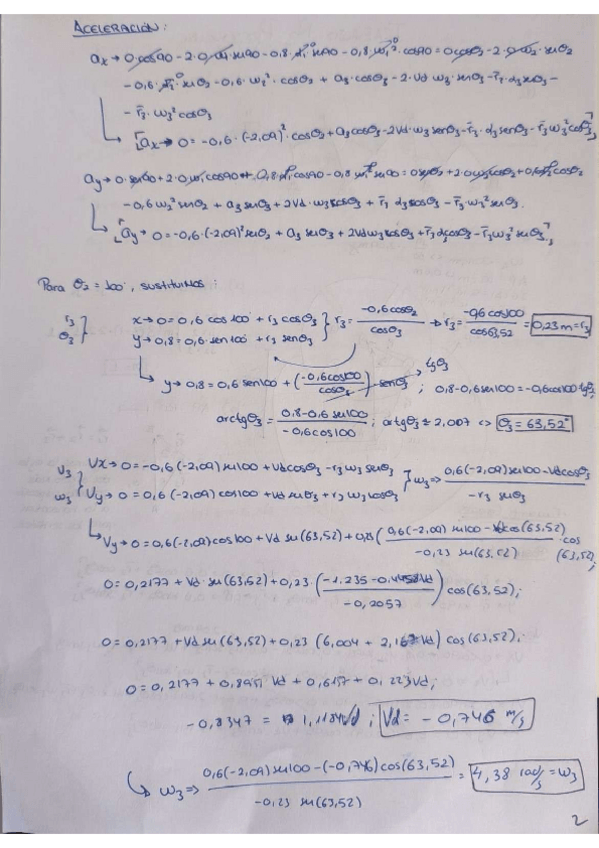 ACELERACIÓN:
ax → 0·cos90 - 2·0·ω1·sen90 - 0,8·α1·sen90 - 0,8·ω1²·cos90 = 0cosθ2 - 2·0·ω2·senθ2
- 0,6·α2·senθ2 - 0,6·ω2²·cosθ2 + a3·cosθ3 - 2·Vd·ω3·senθ3 - r̄3·α3senθ3 -
- r̄3·ω3²cosθ3
[ax → 0 = -0,6·(-2,09)²·cosθ2 + a3cosθ3 - 2Vd·ω3senθ3 - r̄3·α3senθ3 - r̄3ω3²cosθ3]
ay → 0·sen90 + 2·0·ω1cos90 + 0,8·α1cos90 - 0,8ω1²sen90 = 0senθ2 + 2·0ω2cosθ2 + 0,6α2cosθ2
- 0,6ω2²senθ2 + a3senθ3 + 2Vd·ω3cosθ3 + r̄3 α3cosθ3 - r̄3ω3²senθ3.
[ay → 0 = -0,6·(-2,09)²senθ2 + a3 senθ3 + 2Vdω3cosθ3 + r̄3α3cosθ3 - r̄3ω3²senθ3]
Para θ2 = 100°, sustituimos:
r3 θ3 } x → 0 = 0,6 cos100 + r3 cosθ3 } r3 = -0,6cosθ2 / cosθ3 → r3 = -0,6cos100 / cos63,52 = 0,23m = r3
y → 0,8 = 0,6·sen100 + r3 senθ3
tgθ3
y → 0,8 = 0,6 sen100 + (-0,6cos100 / cosθ3)·senθ3 ; 0,8-0,6sen100 = -0,6cos100 tgθ3
arctgθ3 = 0,8-0,6 sen100 / -0,6cos100 ; arctg = 2,007 <> θ3 = 63,52°
V3 ω3 } Vx → 0 = -0,6(-2,09)sen100 + Vdcosθ3 - r3ω3 senθ3 } ω3 => 0,6(-2,09)sen100 - Vdcosθ3 / -r3 senθ3
Vy → 0 = 0,6(-2,09)cos100 + Vd senθ3 + r3 ω3cosθ3
Vy → 0 = 0,6(-2,09)cos100 + Vd sen(63,52) + 0,23 (0,6(-2,09)sen100 - Vdcos(63,52) / -0,23 sen(63,52)) · cos (63,52);
0 = 0,2177 + Vd·sen(63,52) + 0,23·(-1.235 - 0,4458Vd / -0,2057) cos(63,52);
0 = 0,2177 + Vd sen(63,52) + 0,23 (6,004 + 2,167Vd) cos(63,52);
0 = 0,2177 + 0,8951 Vd + 0,6157 + 0,223Vd;
-0,8347 = 1,1184Vd ; Vd = -0,746 m/s
ω3 => 0,6(-2,09)sen100 - (-0,746)cos(63,52) / -0,23 sen(63,52) = 4,38 rad/s = ω3
2